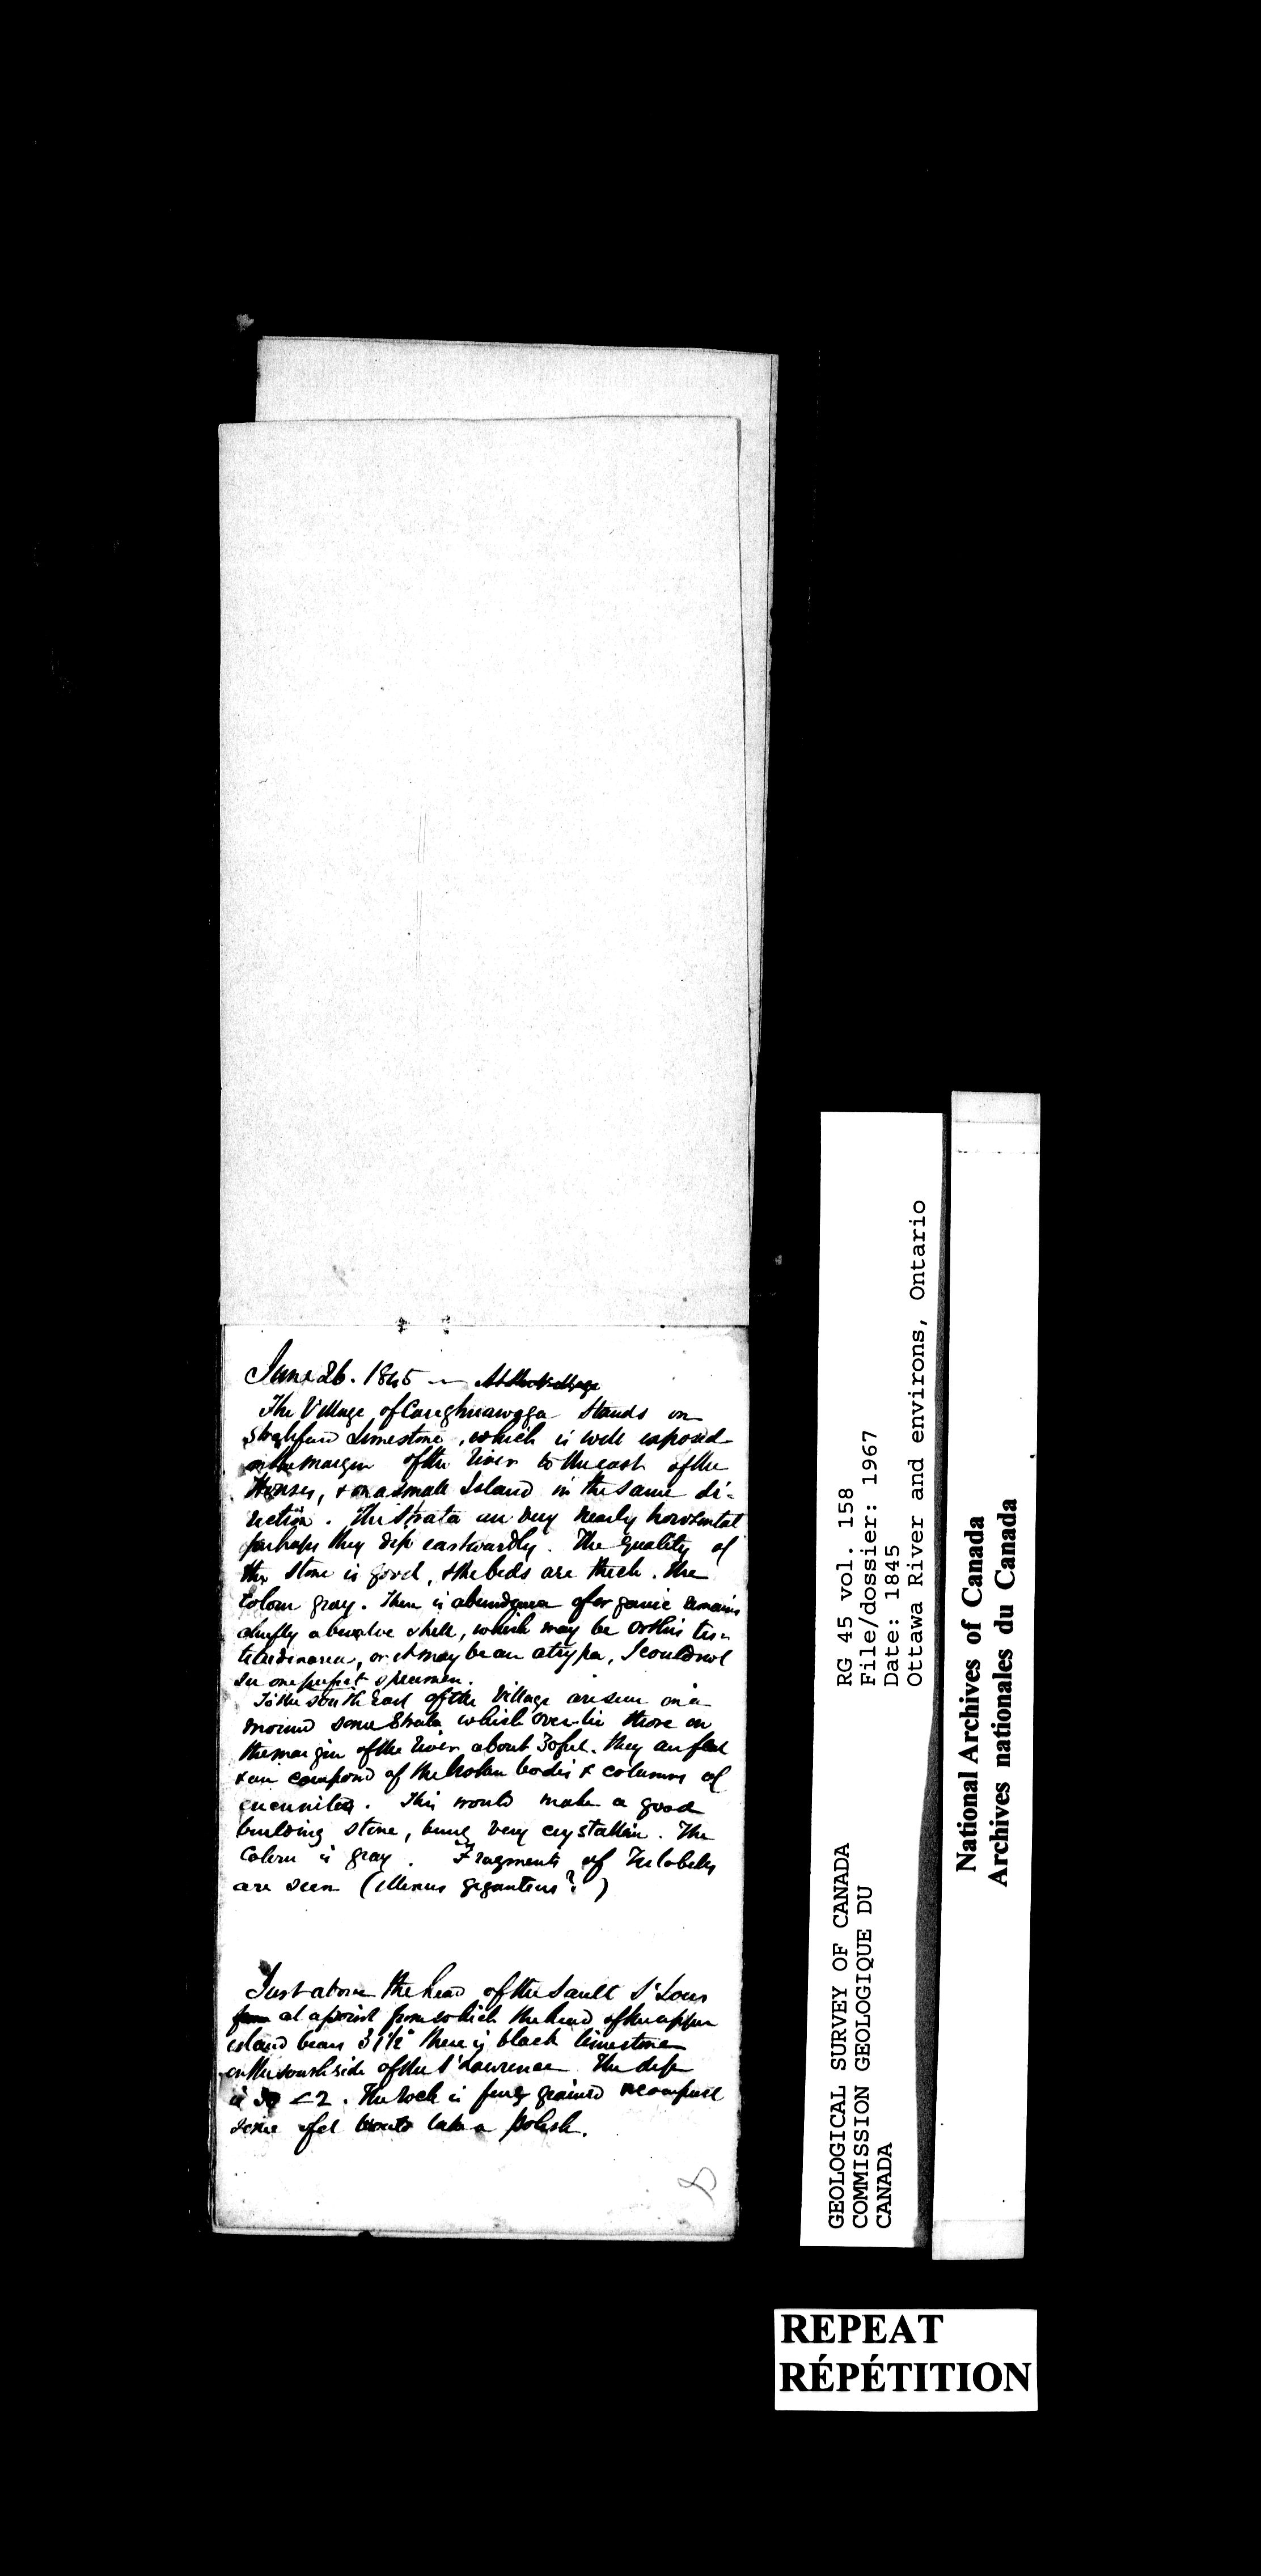 June 26. 1845 — At the Village
The Village of Caughnawaga Stands on
limestone, which is well exposed
on the margin of the River to the east of the
Houses, & on a small Island in the same di-
rection. The Strata are very nearly horizontal
perhaps they dip eastwardly. The quality of
the Stone is good, & the beds are thick. The
Colour gray. There is abundance of organic remains
chiefly a bivalve shell, which may be Orthis tes-
tudinaria, or it may be an atrypa, I could not
see one perfect specimen.
To the South East of the Village are seen on a
mound some Strata which over lie those on
the margin of the River about 30 feet. They are flat
& are composed of the broken bodies & columns of
encrinites. This would make a good
building stone, being very crystalline. The
Colour is gray. Fragments of Trilobites
are seen (Illenus giganteus?)
Just above the head of the Sault St Louis
from at a point from which the head of the upper
island bears 31½° there is black limestone
on the south side of the St Lawrence The dip
is < 2. The rock is fine grained & compact
some of it would take a polish.
8
RG 45 vol. 158
File/dossier: 1967
Date: 1845
Ottawa River and environs, Ontario
GEOLOGICAL SURVEY OF CANADA
COMMISSION GEOLOGIQUE DU
CANADA
National Archives of Canada
Archives nationales du Canada
REPEAT
RÉPÉTITION